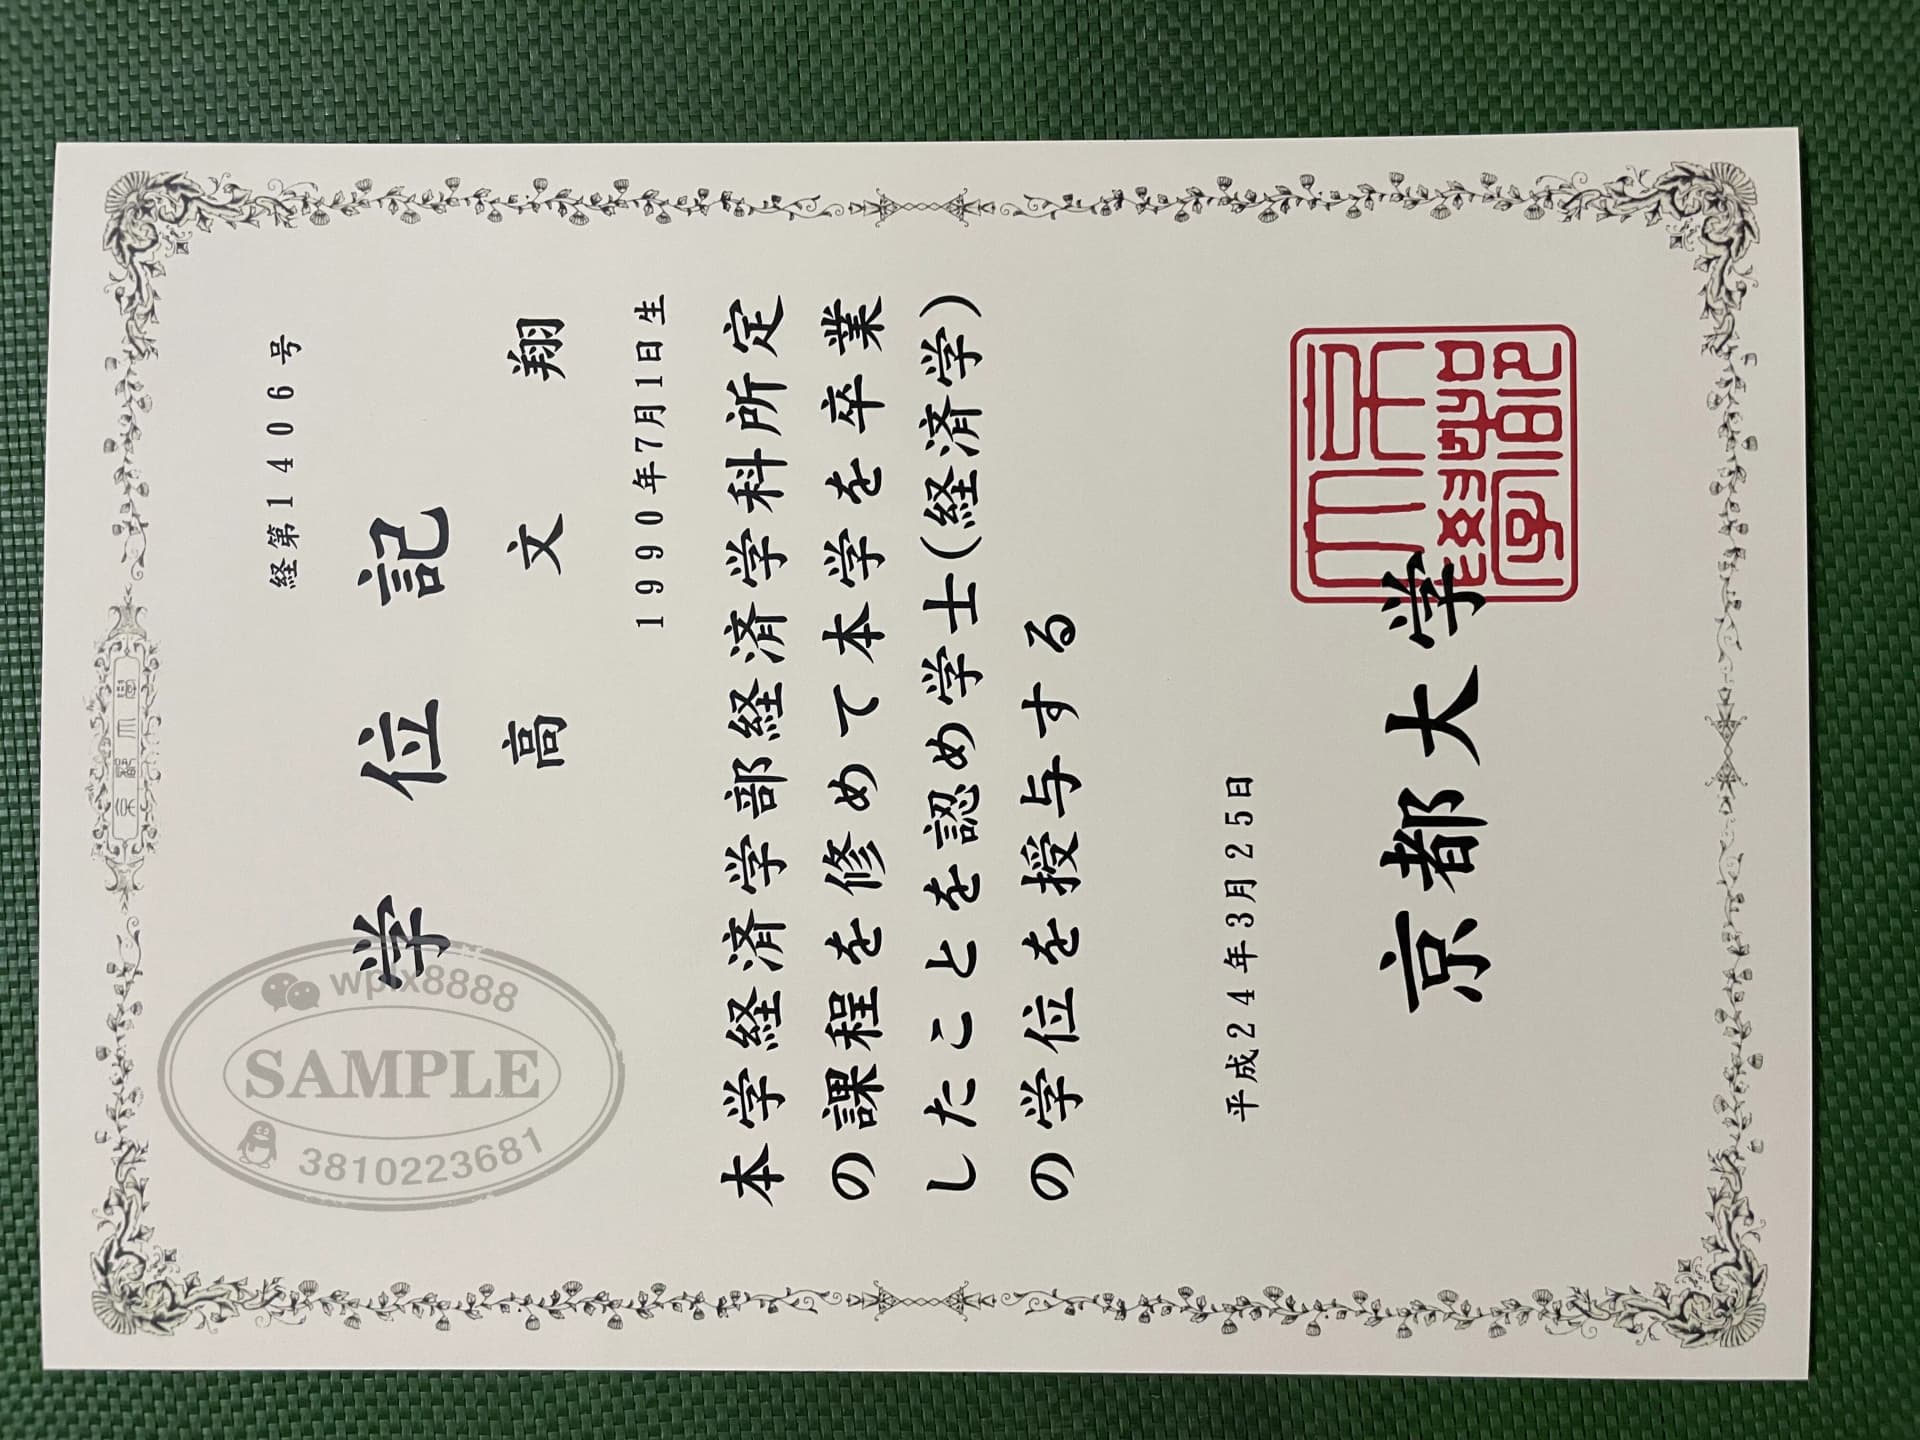 京都大学
経第1406号
学位記
高文翔
1990年7月1日生
本学経済学部経済学科所定
の課程を修めて本学を卒業
したことを認め学士(経済学)
の学位を授与する
平成24年3月25日
京都大学
wplx8888
SAMPLE
3810223681